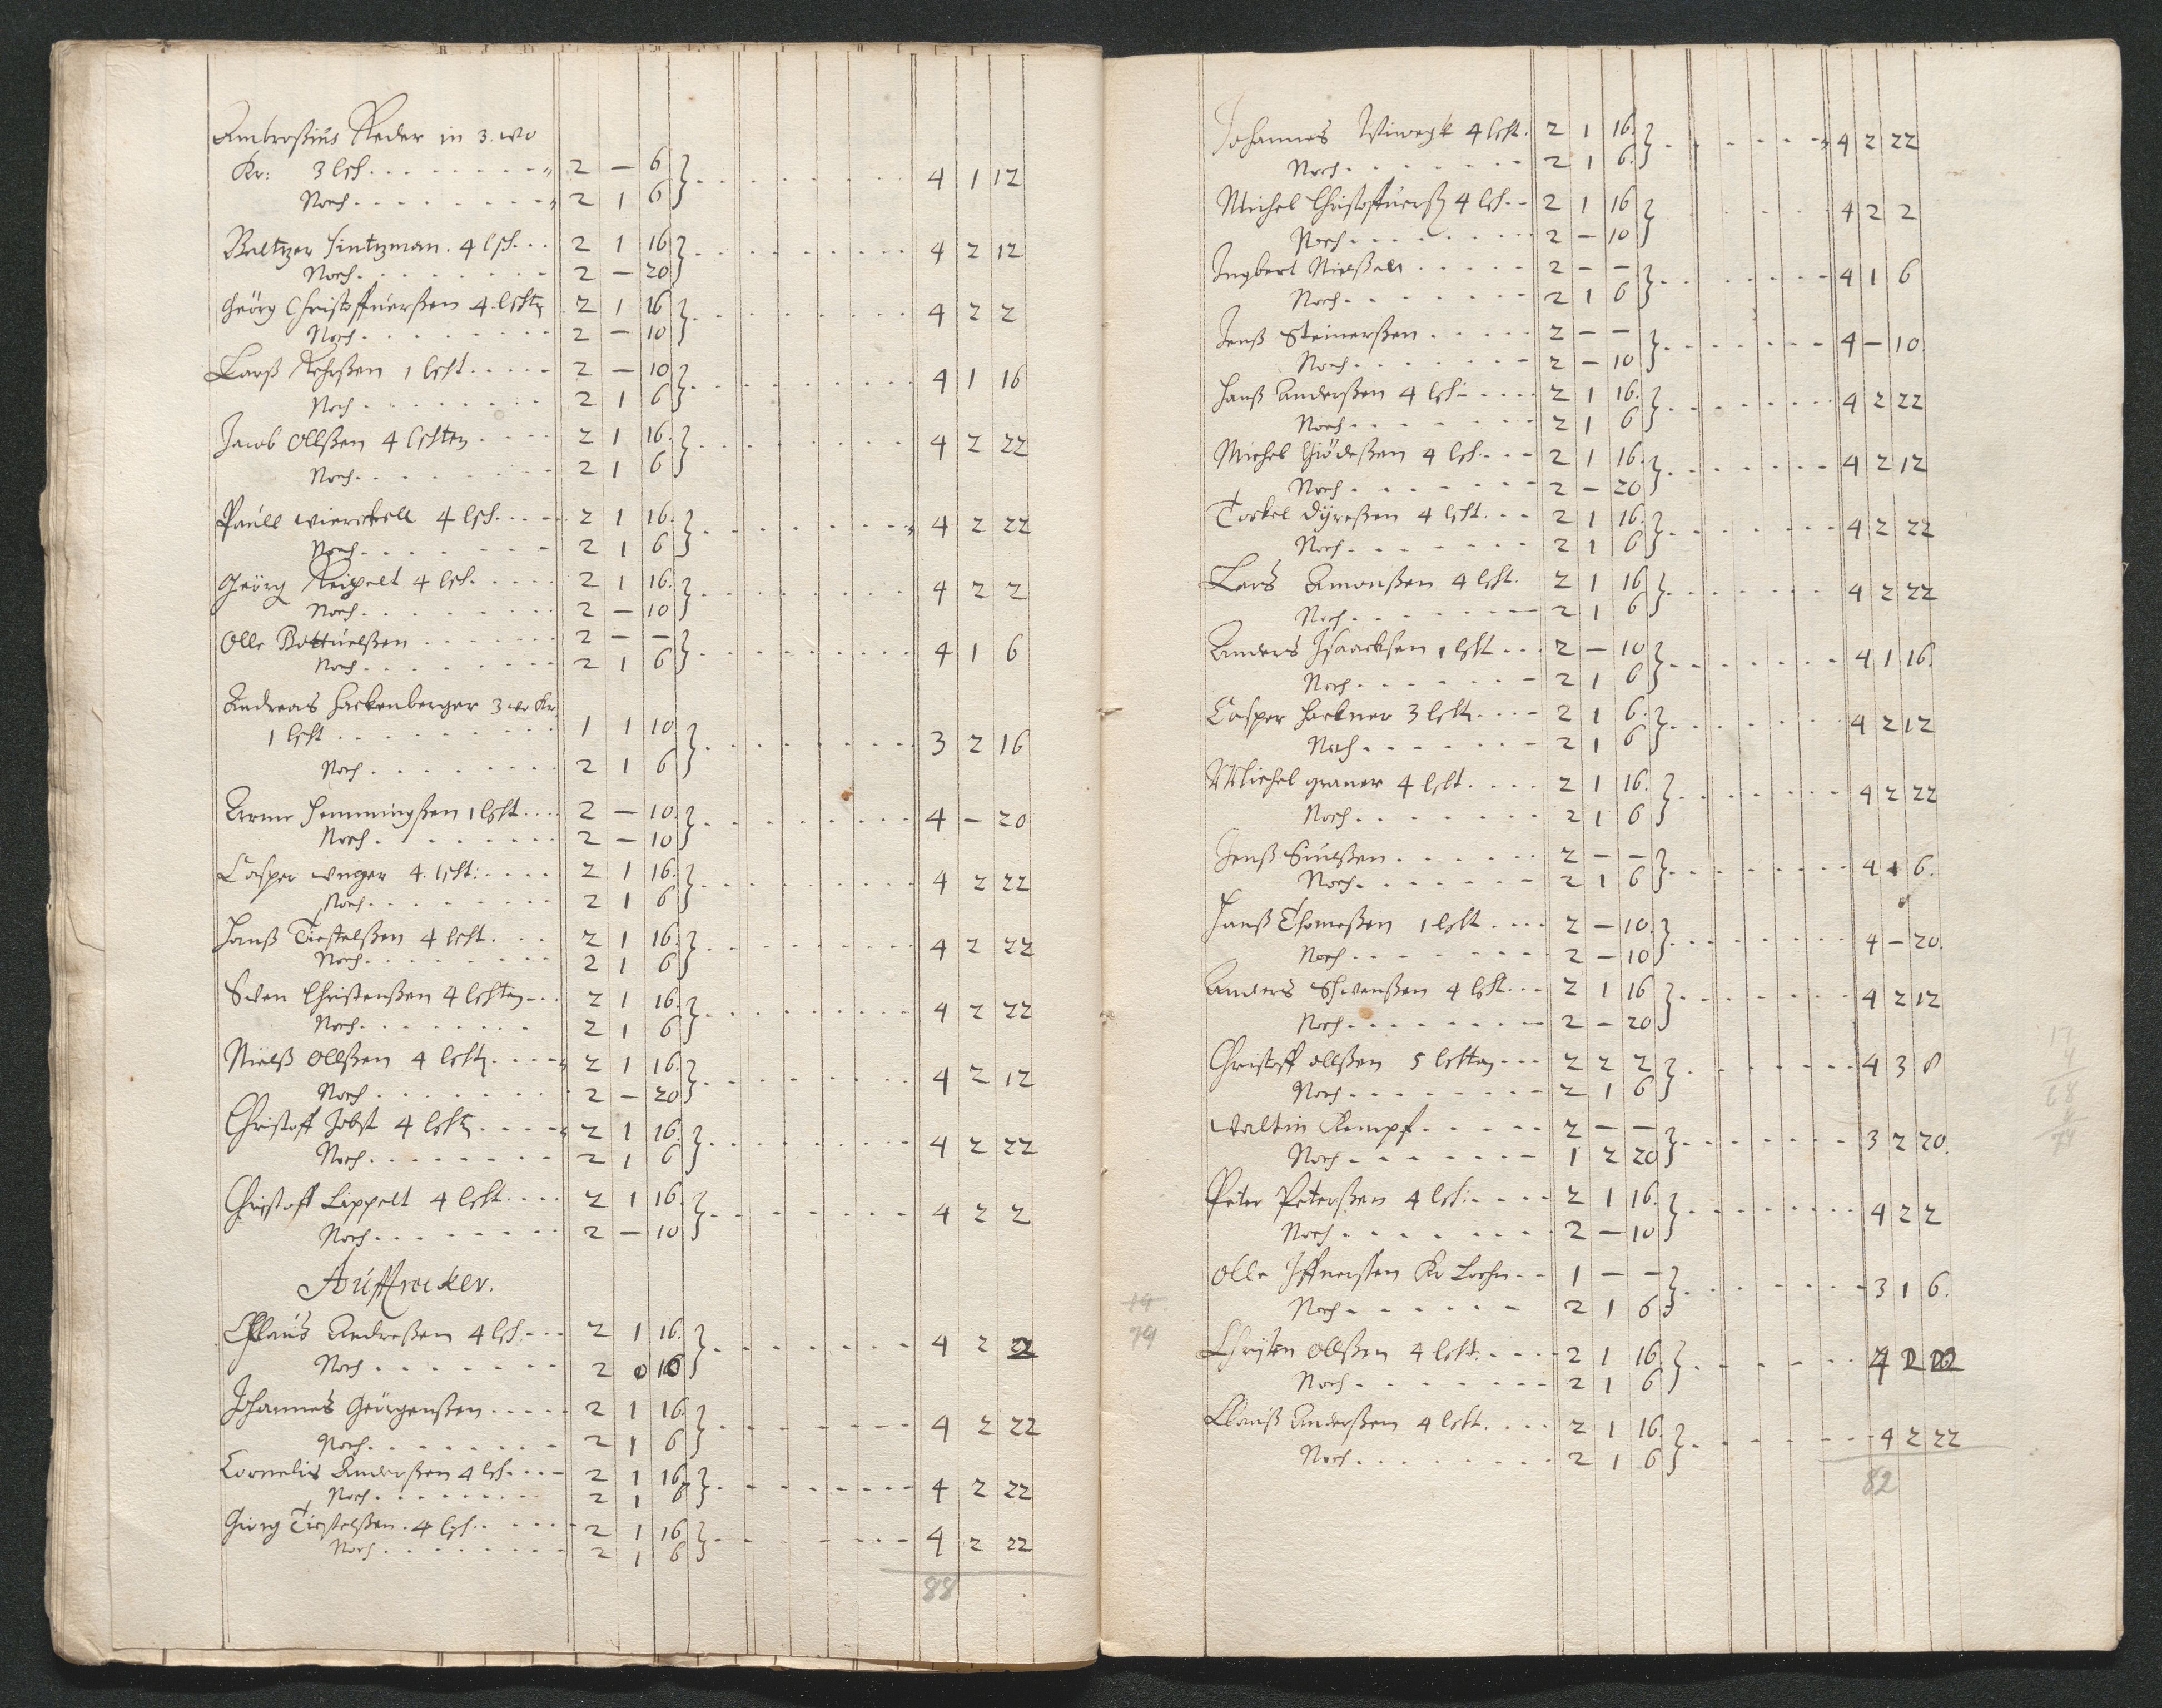 Ambrosius Reder in 3. wo
Kr: 3 lsch. 2 — 6
Noch 2 1 6 } 4 1 12
Baltzer Hintzman. 4 lsch. 2 1 16
Noch 2 — 20 } 4 2 12
Geörg Christoffuerßen 4. lichtn 2 1 16
Noch 2 — 10 } 4 2 2
Larß Rehrßen 1 licht 2 — 10
Noch 2 1 6 } 4 1 16
Jacob Ollßen 4 lichten 2 1 16
Noch 2 1 6 } 4 2 22
Paull wierickell 4 lsch. 2 1 16
Noch 2 1 6 } 4 2 22
Geörg Reippelt 4 lsch. 2 1 16
Noch 2 — 10 } 4 2 2
Olle Bottuelßen 2 — —
Noch 2 1 6 } 4 1 6
Andreas Hackenberger 3 wo Kr
1 licht 1 1 10
Noch 2 1 6 } 3 2 16
Arne Hemmingßen 1 licht 2 — 10
Noch 2 — 10 } 4 — 20
Casper unger 4. licht: 2 1 16
Noch 2 1 6 } 4 2 22
Hanß Tiostelßen 4 licht 2 1 16
Noch 2 1 6 } 4 2 22
Swen Christenßen 4 lichten 2 1 16
Noch 2 1 6 } 4 2 22
Nielß Ollßen 4 lichtn 2 1 16
Noch 2 — 20 } 4 2 12
Christoff Jobst 4 lichtn 2 1 16
Noch 2 1 6 } 4 2 22
Christoff Lippelt 4 licht 2 1 16
Noch 2 — 10 } 4 2 2
Auffwecker.
Claus Andreßen 4 lsch. 2 1 16
Noch 2 0 10 } 4 2 2
Johannes Geörgenßen 2 1 16
Noch 2 1 6 } 4 2 22
Cornelis Anderßen 4 lsch. 2 1 16
Noch 2 1 6 } 4 2 22
Georg Tiostelßen. 4 lsch. 2 1 16
Noch 2 1 6 } 4 2 22
88
Johannes 4 licht. 2 1 16
Noch 2 1 6 } 4 2 22
Michel Christoffuerß 4 lsch. 2 1 16
Noch 2 — 10 } 4 2 2
Ingbert Nielßen 2 — —
Noch 2 1 6 } 4 1 6
Jenß Steinerßen 2 — —
Noch 2 — 10 } 4 — 10
Hanß Anderßen 4 lsch: 2 1 16
Noch 2 1 6 } 4 2 22
Michel Giödeßen 4 lsch. 2 1 16
Noch 2 — 20 } 4 2 12
Torkel Dÿreßen 4 licht. 2 1 16
Noch 2 1 6 } 4 2 22
Lars Amonßen 4 licht. 2 1 16
Noch 2 1 6 } 4 2 22
Anders Isaacksen 1 licht 2 — 10
Noch 2 1 6 } 4 1 16
Casper Hackner 3 lichtn 2 1 6
Noch 2 1 6 } 4 2 12
Michel graner 4 licht 2 1 16
Noch 2 1 6 } 4 2 22
Jenß Siuelßen 2 — —
Noch 2 1 6 } 4 1 6
Hanß Thomeßen 1 licht 2 — 10
Noch 2 — 10 } 4 — 20
Anders Schwenßen 4 licht 2 1 16
Noch 2 — 20 } 4 2 12
Christoff ollßen 5 lichten 2 2 2
Noch 2 1 6 } 4 3 8
Valtin Kempf 2 — —
Noch 1 2 20 } 3 2 20
Peter Peterßen 4 lsch: 2 1 16
Noch 2 — 10 } 4 2 2
Olle Iffuerßen Kr Lohn 1 — —
Noch 2 1 6 } 3 1 6
Christen ollßen 4 licht: 2 1 16
Noch 2 1 6 } 4 2 22
Clauß Anderßen 4 licht 2 1 16
Noch 2 1 6 } 4 2 22
82
17
4
68
19
79